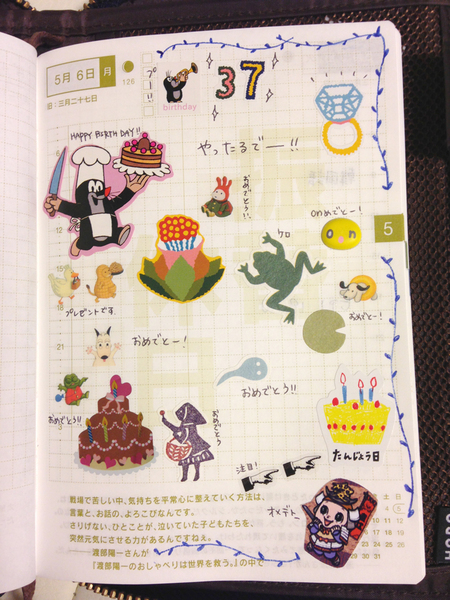 5月 6日 月
126
旧:三月二十七日
プー!!
birthday
37
HAPPY BIRTHDAY!!
やったるでー!!
おめでとう!!
onめでとー!
on
5
ケロ
12
15
18
プレゼントです
おめでとー!
21
おめでとー!
おめでとう!!
おめでとう!!
おめでとう
たんじょう日
注目!
オメデトー
戦場で苦しい中、気持ちを平常心に整えていく方法は、
言葉と、お話の、よろこびなんです。
さりげない、ひとことが、泣いていた子どもたちを、
突然元気にさせる力があるんですねぇ。
──渡部陽一さんが
『渡部陽一のおしゃべりは世界を救う。』の中で
土 日